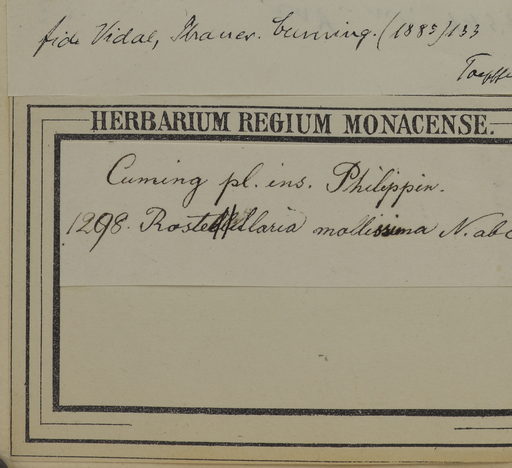 fide Vidal, Phaner. Cuming. (1885) 133
HERBARIUM REGIUM MONACENSE.
Cuming pl. ins. Philippin.
1298. Rostellularia mollissima N. ab